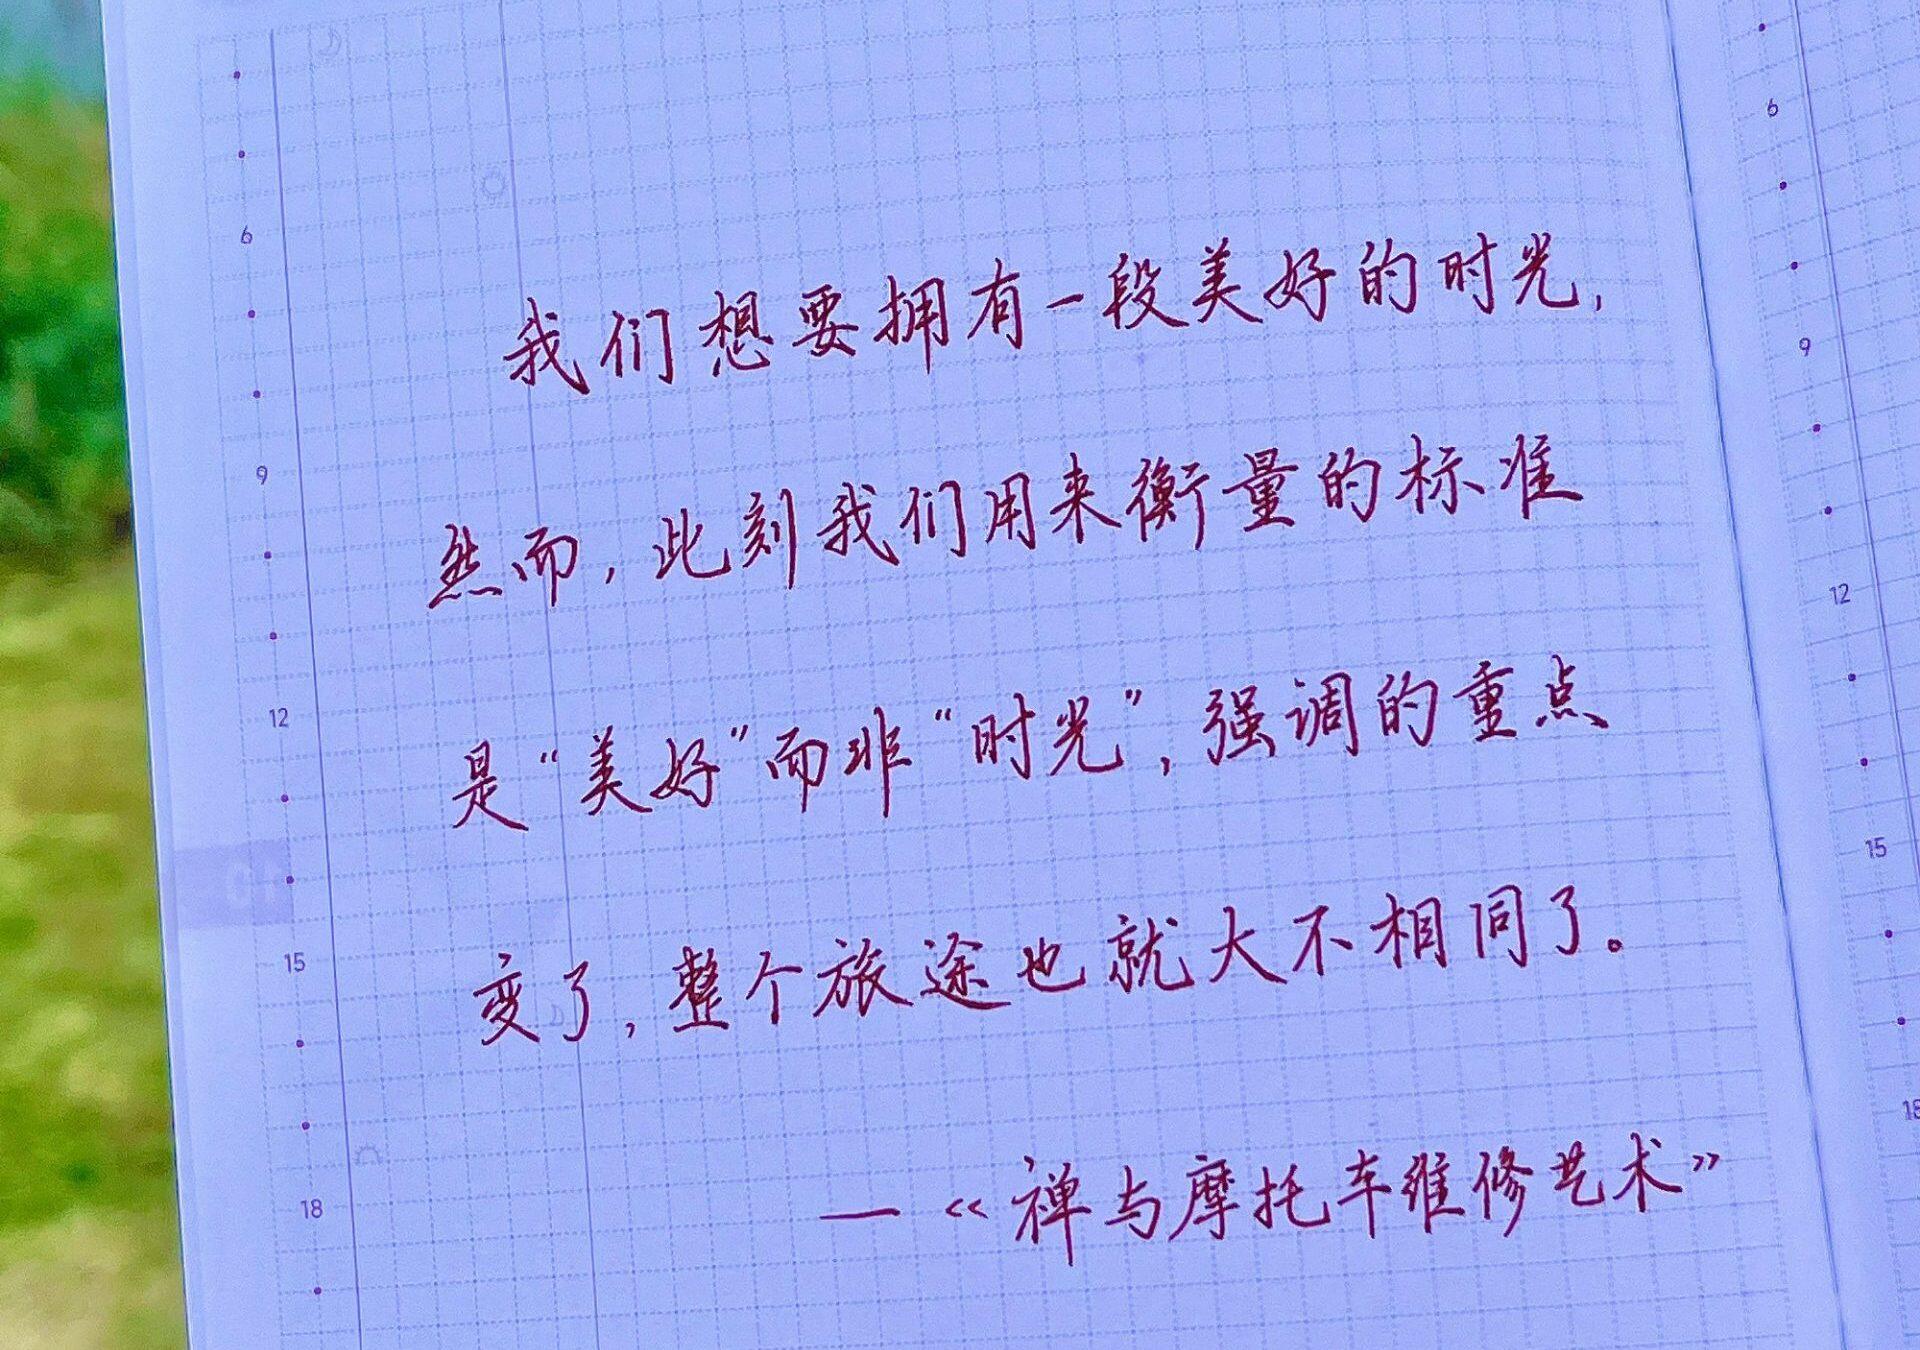 我们想要拥有一段美好的时光,
然而,此刻我们用来衡量的标准
是“美好”而非“时光”,强调的重点
变了,整个旅途也就大不相同了。
—《禅与摩托车维修艺术》
6
9
12
15
18
6
9
12
15
18